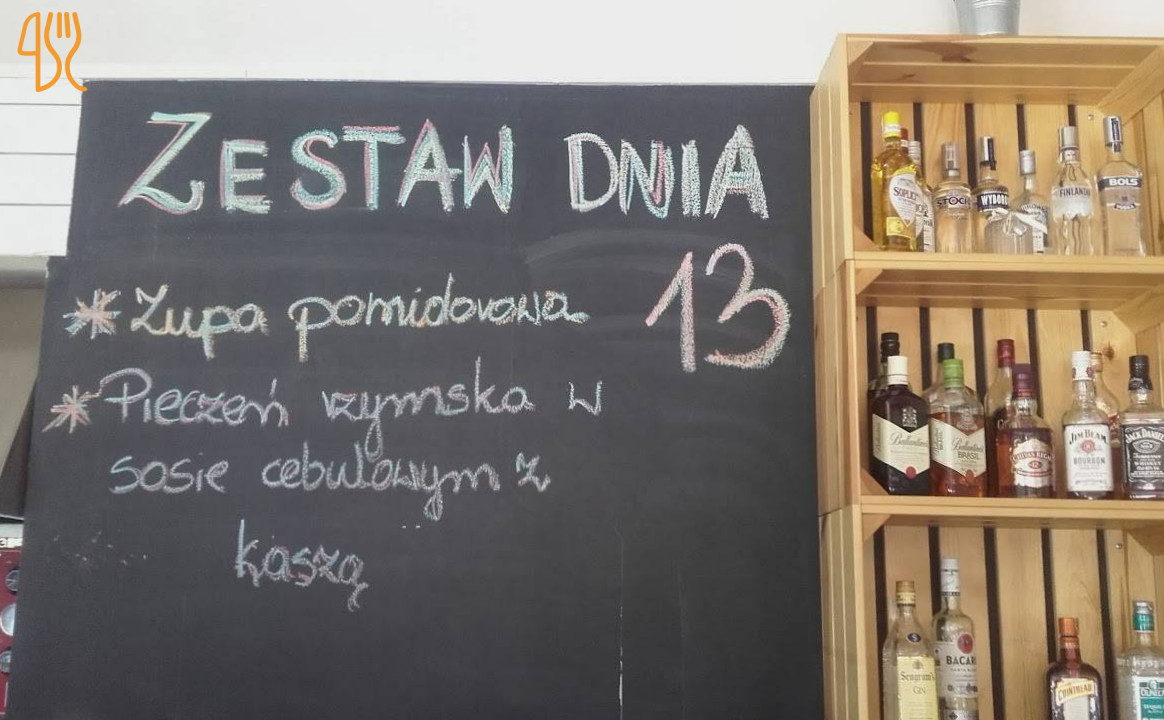 ZESTAW DNIA
13
* Zupa pomidorowa
* Pieczeń rzymska w
sosie cebulowym z
kaszą
SOPLICA
STOCK
WYBOROWA
FINLANDIA
BOLS
VODKA
Ballantine's
Ballantine's
BRASIL
JIM BEAM
BOURBON
JACK DANIEL'S
Seagram's
GIN
BACARDI
COINTREAU
OLMECA